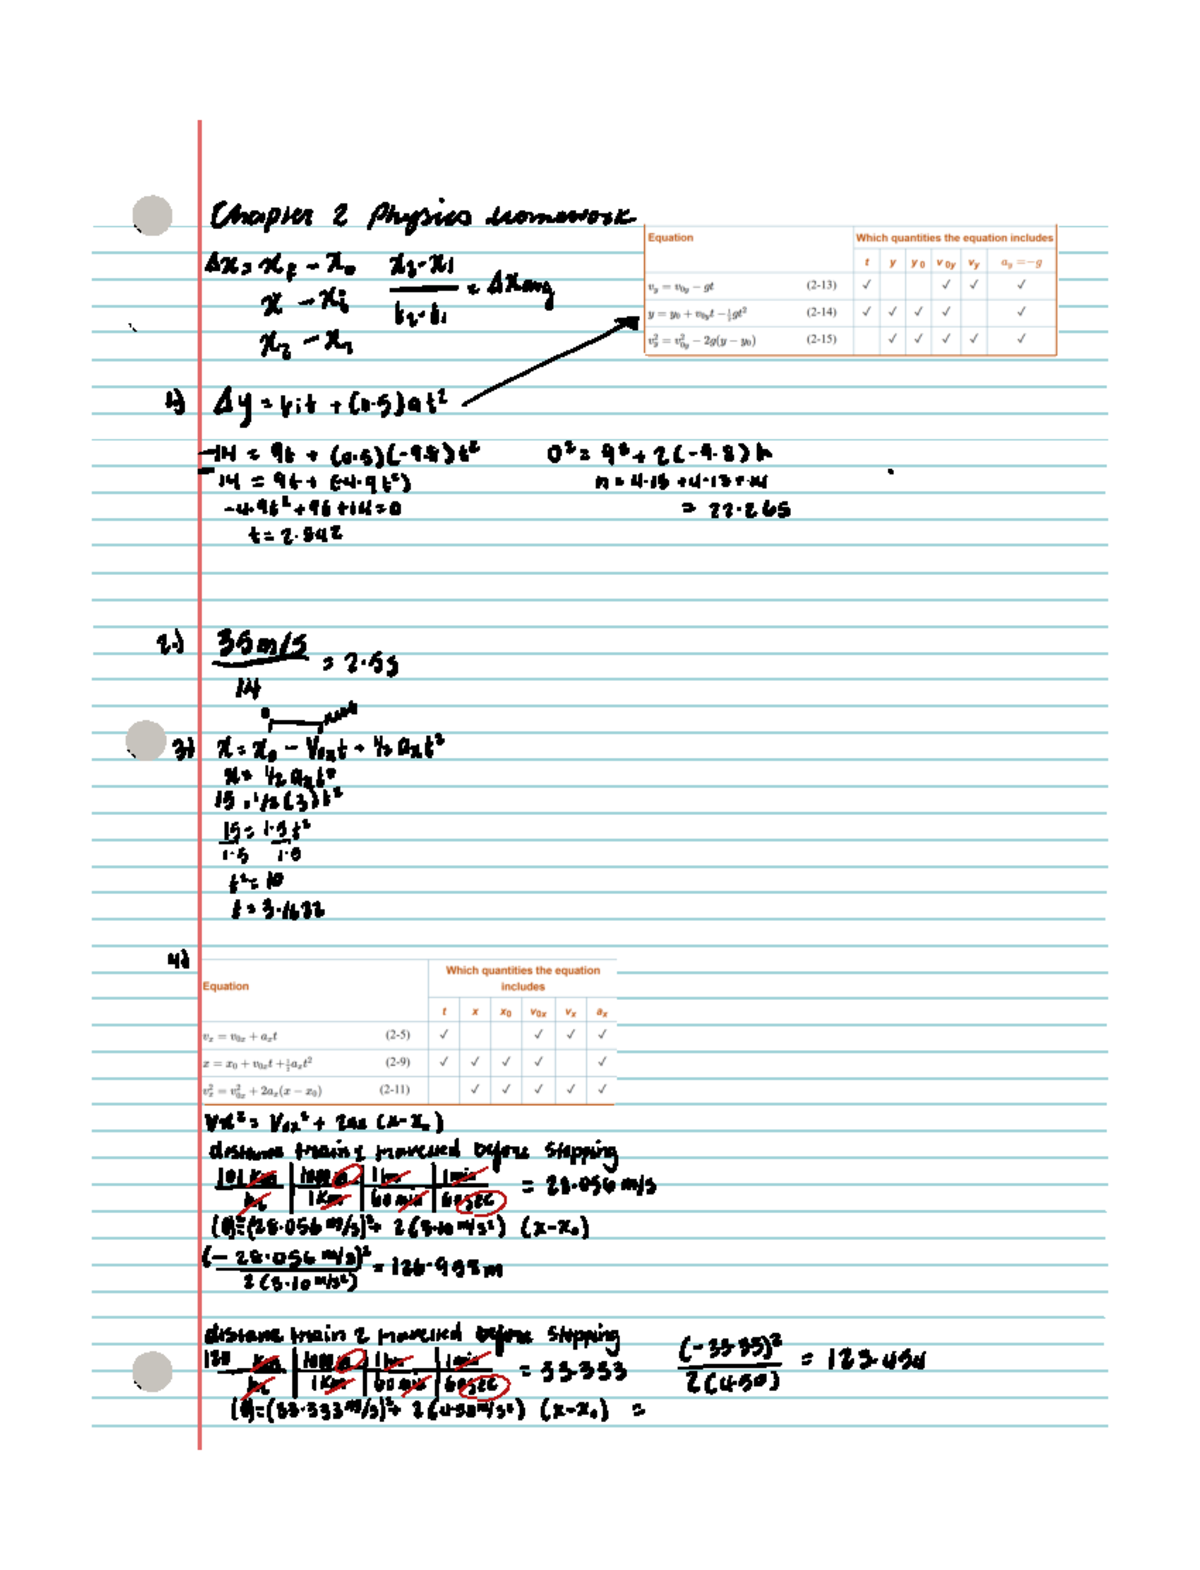 Chapter 2 Physics Homework
Δx = x_f - x_0
x - x_i
x_2 - x_1
x_2 - x_1 / t_2 - t_1 = Δx avg
Equation Which quantities the equation includes
t y y_0 v_0y v_y a_y = -g
v_x = v_0y - gt (2-13) ✓ ✓ ✓ ✓
y = y_0 + v_0y t - ½gt² (2-14) ✓ ✓ ✓ ✓ ✓
v_x² = v_0y² - 2g(y - y_0) (2-15) ✓ ✓ ✓ ✓ ✓
1) Δy = vit + (0.5)at²
-14 = 9t + (0.5)(-9.8)t² 0² = 9² + 2(-9.8)h
-14 = 9t + (-4.9t²)
-4.9t² + 9t + 14 = 0 = 22.265
t = 2.842
2.) 35 m/s / 14 = 2.5s
3) x = x_0 - V_0x t + ½ a_x t²
x = ½ a_x t²
15 = 1/2 (3) t²
15 = 1.5 t²
1.5 1.5
t² = 10
t = 3.1622
4)
Equation Which quantities the equation includes
t x x_0 v_0x v_x a_x
v_x = v_0x + a_x t (2-5) ✓ ✓ ✓ ✓
x = x_0 + v_0x t + ½a_x t² (2-9) ✓ ✓ ✓ ✓ ✓
v_x² = v_0x² + 2a_x(x - x_0) (2-11) ✓ ✓ ✓ ✓ ✓
Vx² = V_0x² + 2ax (x - x_0)
distance train 1 travelled before stopping
101 km | 1000 m | 1 hr | 1 min
hr | 1 km | 60 min | 60 sec = 28.056 m/s
(0)² = (28.056 m/s)² + 2(3.10 m/s²) (x - x_0)
(-28.056 m/s)² / 2(3.10 m/s²) = 126.958 m
distance train 2 travelled before stopping
120 km | 1000 m | 1 hr | 1 min
hr | 1 km | 60 min | 60 sec = 33.333
(-33.33)² / 2(4.50) = 123.434
(0) = (33.333 m/s)² + 2(4.50 m/s²) (x - x_0) =